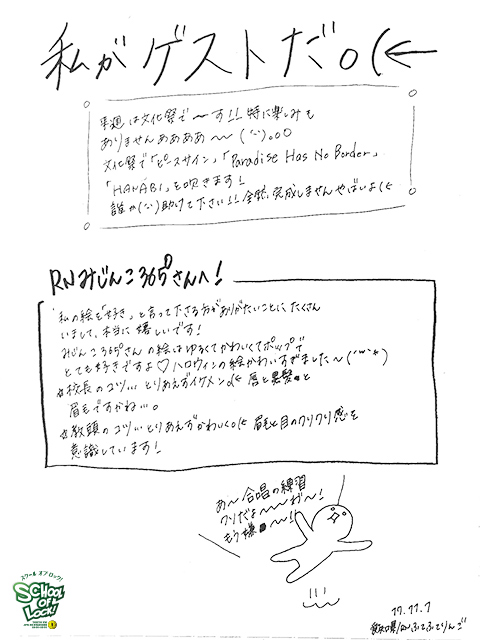 私がゲストだ。(←
来週は文化祭で〜す!!特に楽しみも
ありませんああああ〜〜
文化祭で「ピースサイン」「Paradise Has No Border」
「HANABI」を吹きます!
誰か助けて下さい!!全然完成しませんやばいよ(←
RNみじんこ365さんへ!
私の絵を「好き」と言って下さる方がありがたいことに、たくさん
いまして、本当に嬉しいです!
みじんこ365さんの絵はゆるくてかわいくてポップで
とても好きですよ♡ハロウィンの絵かわいすぎました〜
☆校長のコツ…とりあえずイケメン 唇と黒髪と
眉毛ですかね…。
☆教頭のコツ…とりあえずかわいく。(← 眉毛と目のクリクリ感を
意識しています!
あ〜合唱の練習
クソだよ〜〜〜わ〜!
もう嫌〜!!
スクール オブ ロック!
SCHOOL OF LOCK!
17.11.7
RNふてふてりんご